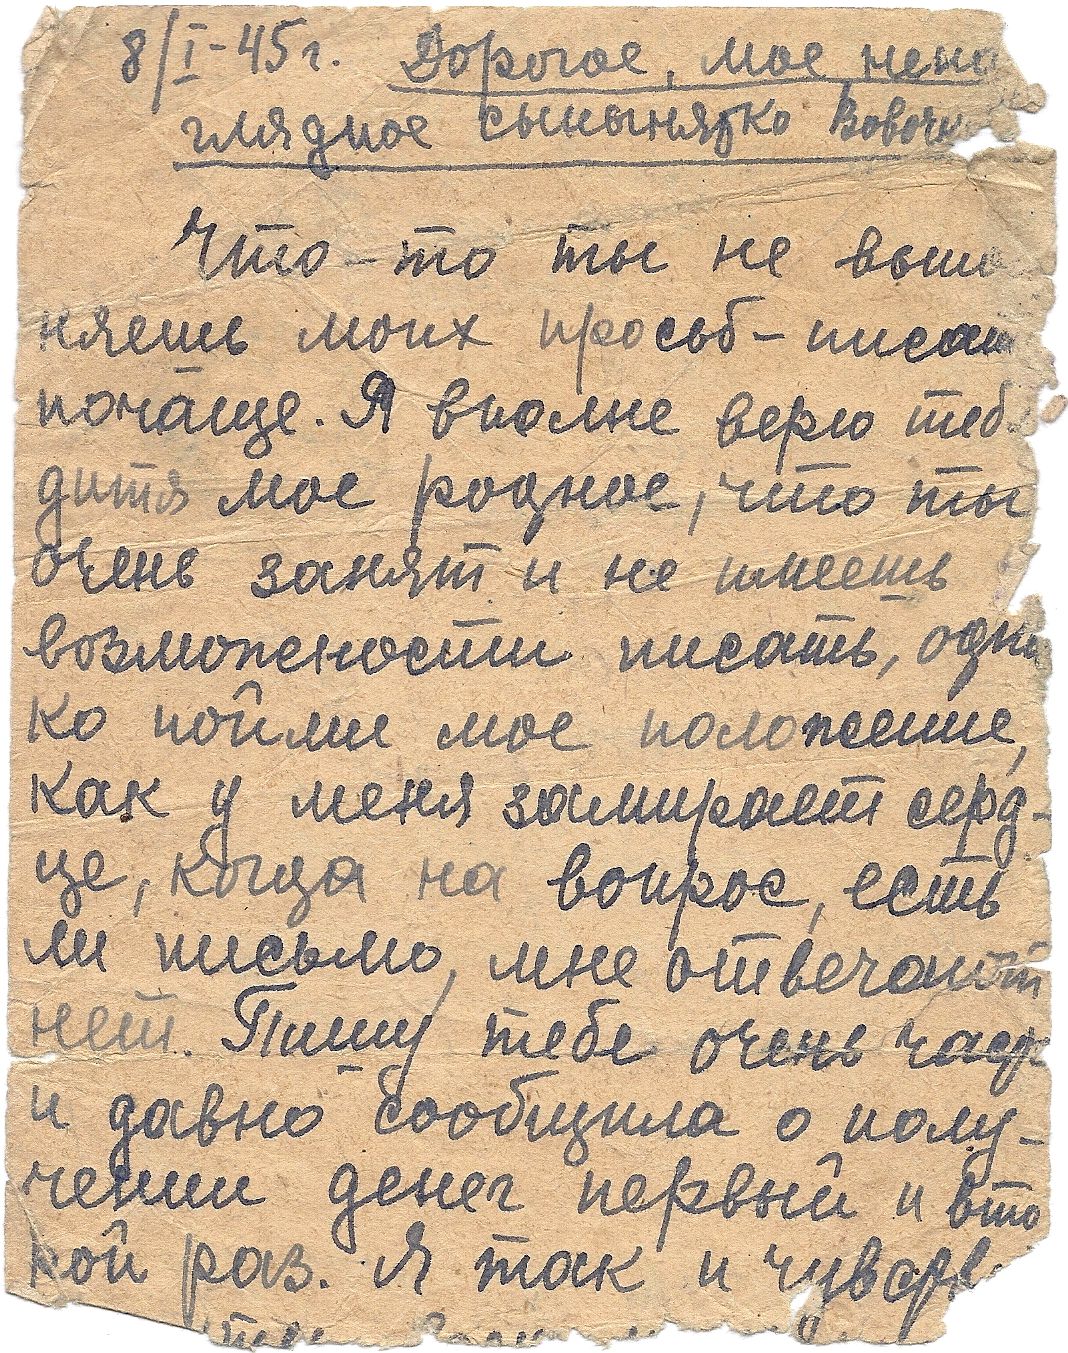 8/I-45г. Дорогое, мое нена
глядное сынынятко Вовочк
Что-то ты не выпо
няешь моих просьб - писат
почаще. Я вполне верю теб
дитя мое родное, что ты
очень занят и не имеешь
возможности писать, одна
ко пойми мое положение,
как у меня замирает серд-
це, когда на вопрос, есть
ли письмо, мне отвечают
нет. Пишу тебе очень часто
и давно сообщила о полу-
чении денег первый и вто
рой раз. Я так и чувств